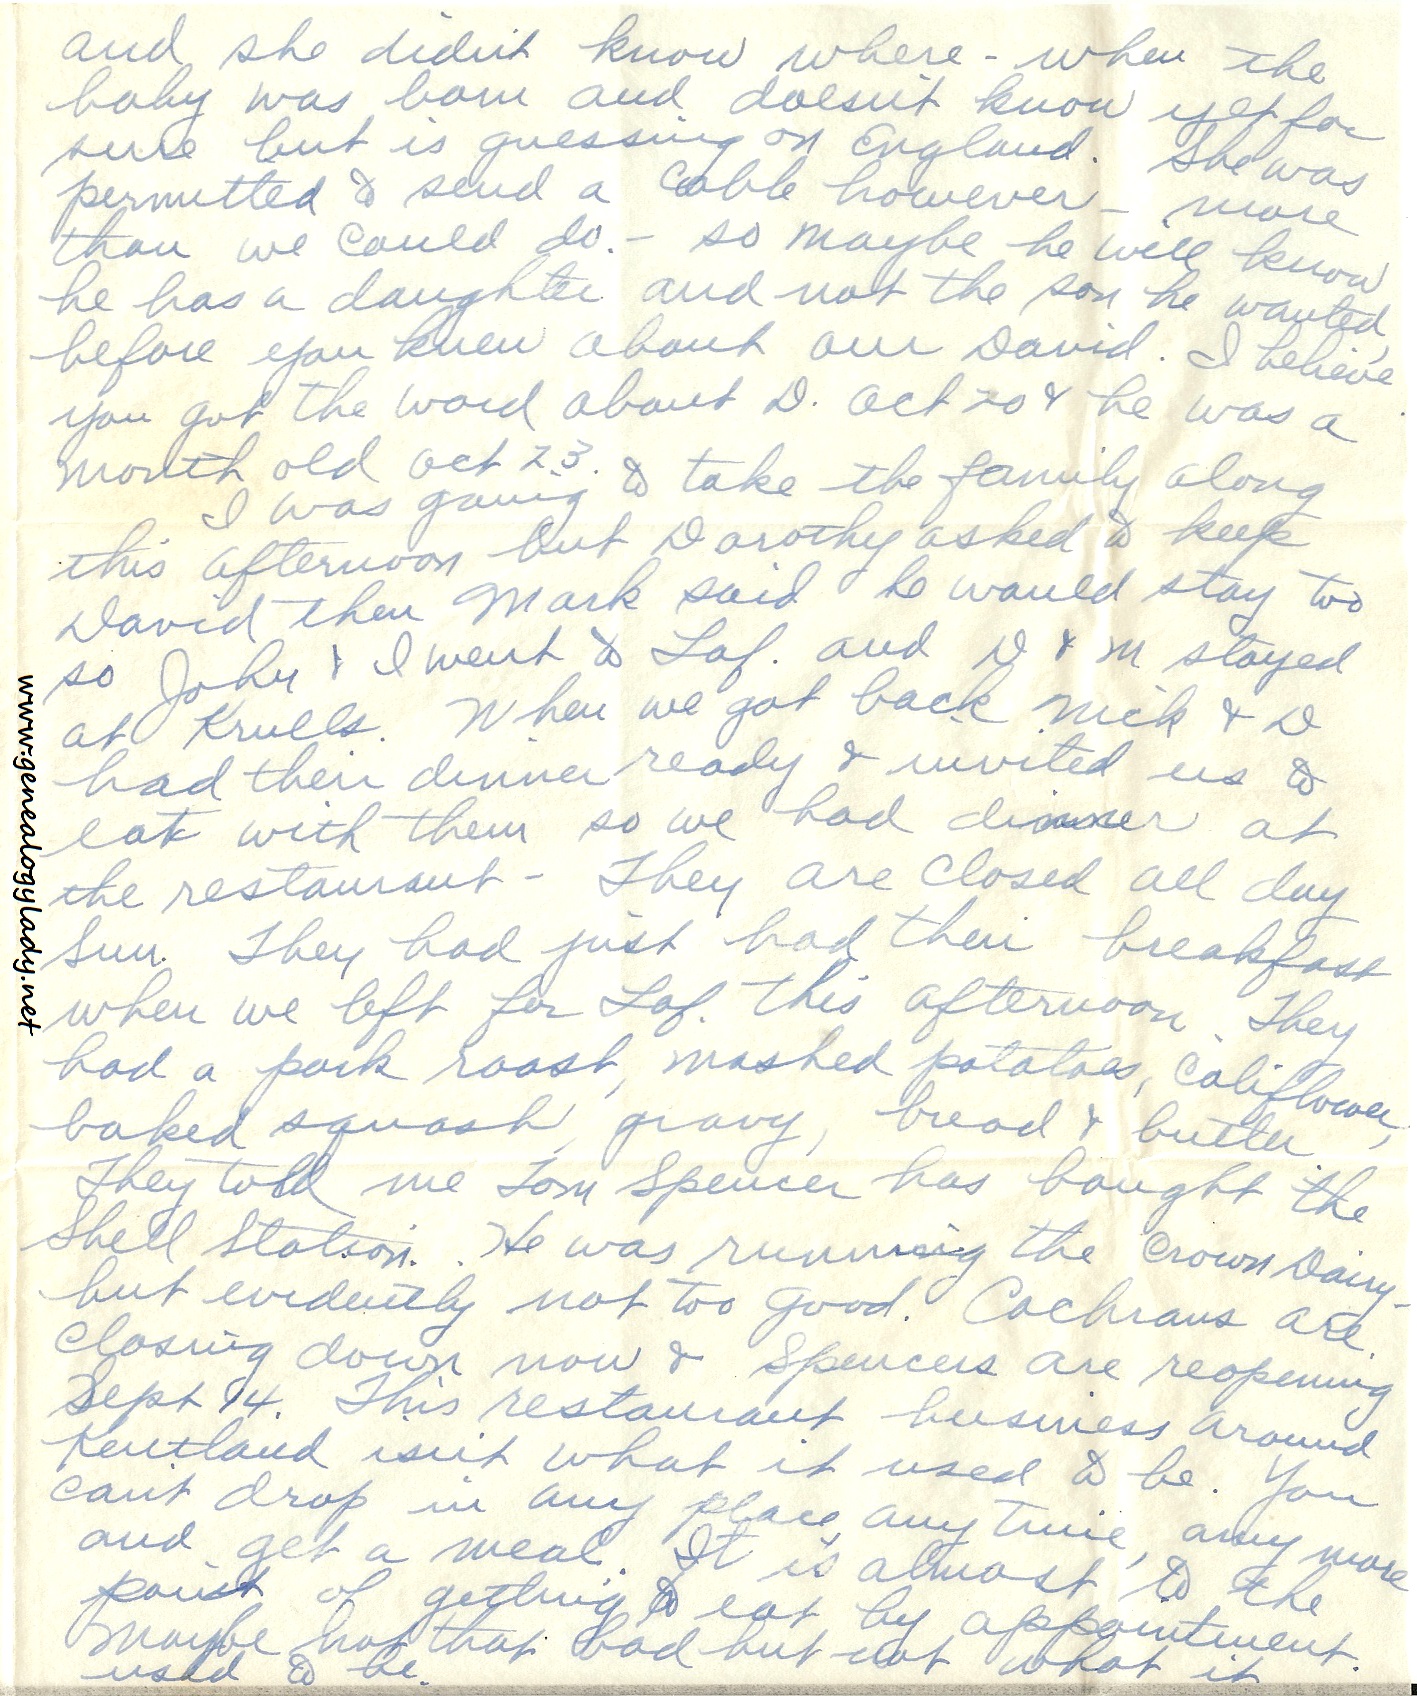 and she didn't know where - when the
baby was born and doesn't know yet for
sure but is guessing on England. She was
permitted to send a cable however - more
than we could do. - so maybe he will know
he has a daughter and not the son he wanted,
before you knew about our David. I believe
you got the word about D. Oct 20 & he was a
month old Oct 23.
I was going to take the family along
this afternoon but Dorothy asked to keep
David then Mark said he would stay too
so John & I went to Laf. and D & M stayed
at Krulls. When we got back Nick & D
had their dinner ready & invited us to
eat with them so we had dinner at
the restaurant - They are closed all day
Sun. They had just had their breakfast
when we left for Laf. this afternoon. They
had a pork roast, mashed potatoes, califlower,
baked squash, gravy, bread & butter.
They told me Tom Spencer has bought the
Shell Station. He was running the Crown Dairy -
but evidently not too good. Cochrans are
closing down now & Spencers are reopening
Sept 14. This restaurant business around
Kentland isn't what it used to be. You
can't drop in any place, any time, any more
and get a meal. It is almost to the
point of getting to eat by appointment.
Maybe not that bad but not what it
used to be.
www.genealogylady.net